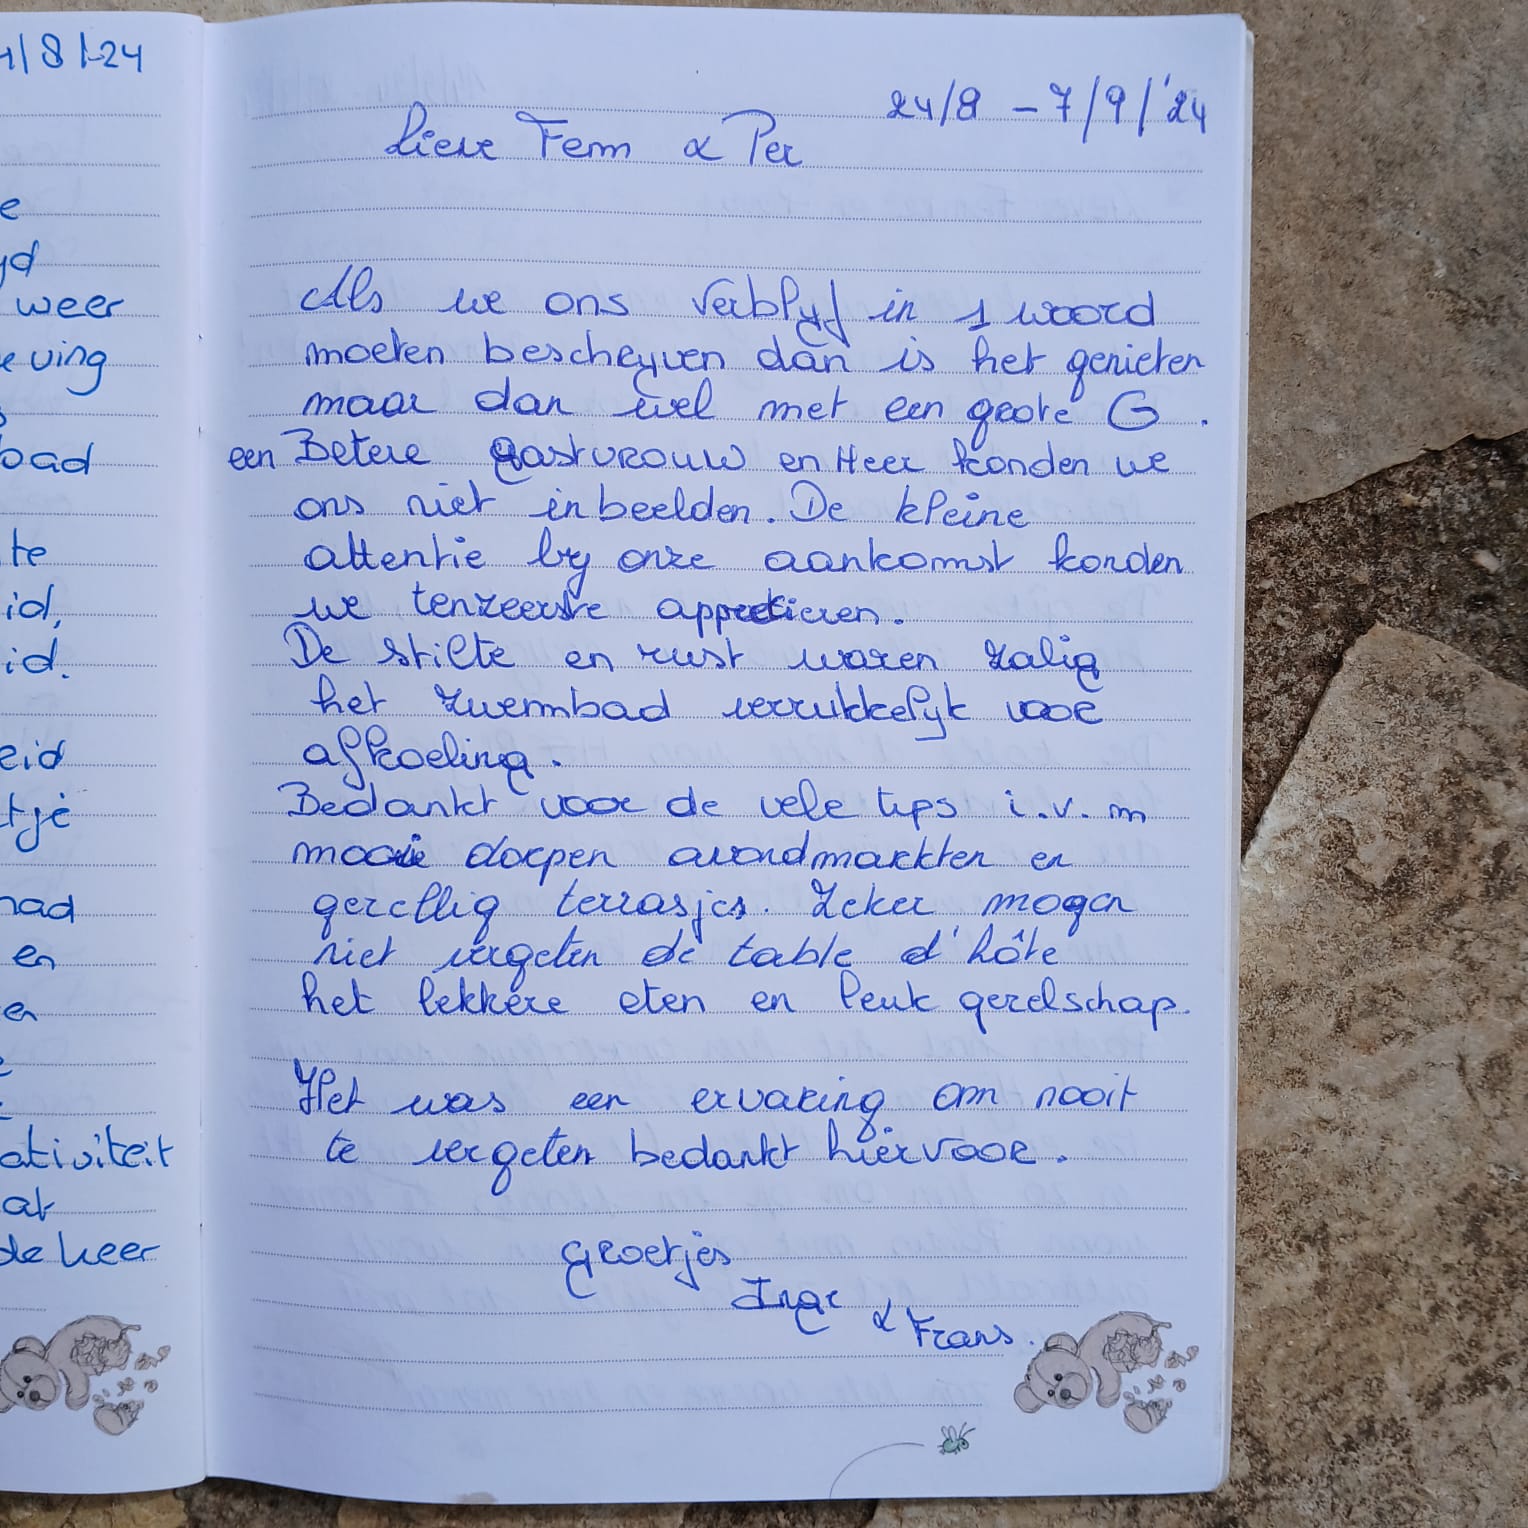 1/8/-24
e
yd
weer
eving
s
bad
te
id,
id.
eid
tje
had
en
en
ativiteit
at
de heer
24/8 - 7/9/'24
Lieve Fem & Per
Als we ons verblyf in 1 woord
moeten beschryven dan is het genieten
maar dan wel met een grote G.
een Betere gastvrouw en Heer konden we
ons niet inbeelden. De kleine
attentie by onze aankomst konden
we tenzeerste appreciëren.
De stilte en rust waren zalig
het zwembad verrukkelyk voor
afkoeling.
Bedankt voor de vele tips i.v.m
mooie dorpen avondmarkten en
gezellig terrasjes. Zeker mogen
niet vergeten de table d'hôte
het lekkere eten en leuk gezelschap.
Het was een ervaring om nooit
te vergeten bedankt hiervoor.
Groetjes
Inge
& Frans.